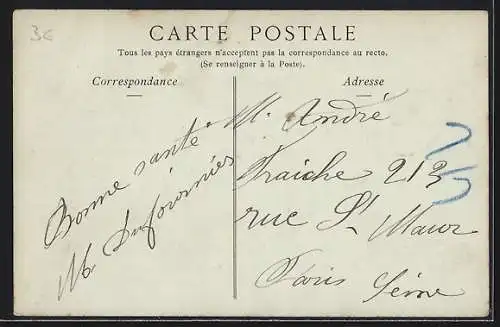 3e
CARTE POSTALE
Tous les pays étrangers n'acceptent pas la correspondance au recto.
(Se renseigner à la Poste).
Correspondance
Bonne santé
M Dufournier
Adresse
M. André
Fraiche 213
rue St Maur
Paris Seine